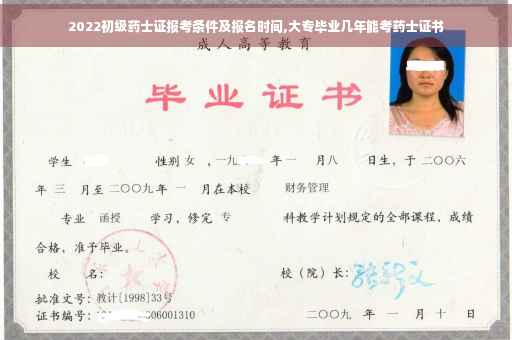 2022初级药士证报考条件及报名时间,大专毕业几年能考药士证书
成人高等教育
毕业证书
学生 性别 女 ,一九 年 一 月 八 日生，于 二〇〇六
年 三 月至 二〇〇九年 一 月在本校 财务管理
专业 函授 学习，修完 专 科教学计划规定的全部课程，成绩
合格，准予毕业。
校 名： 校（院）长：
批准文号：教计[1998]33号
证书编号： 06001310 二〇〇九 年 一 月 十 日